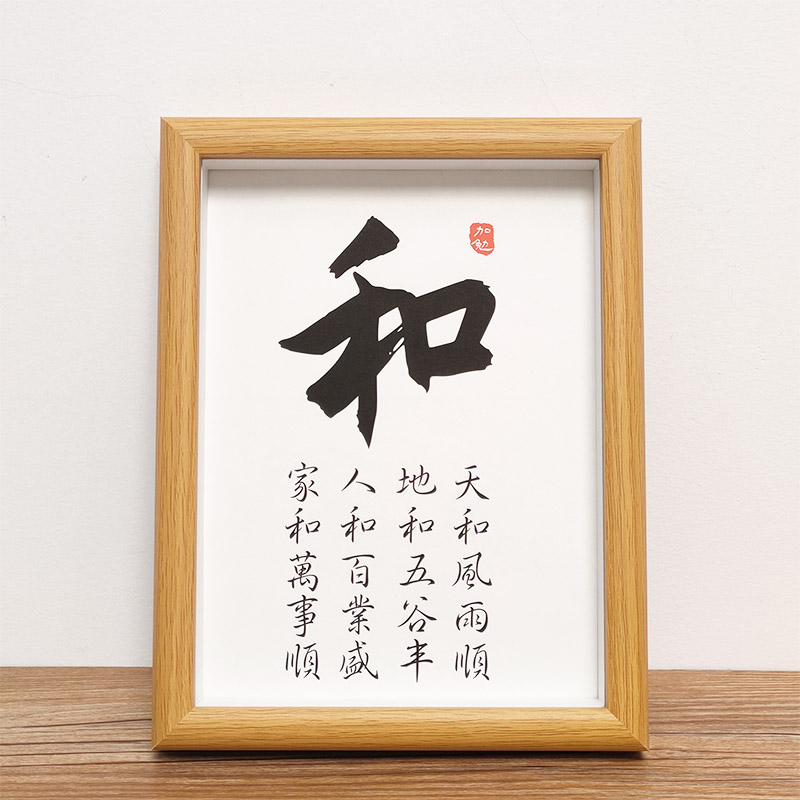 和
加勉
天和風雨順
地和五谷丰
人和百業盛
家和萬事順